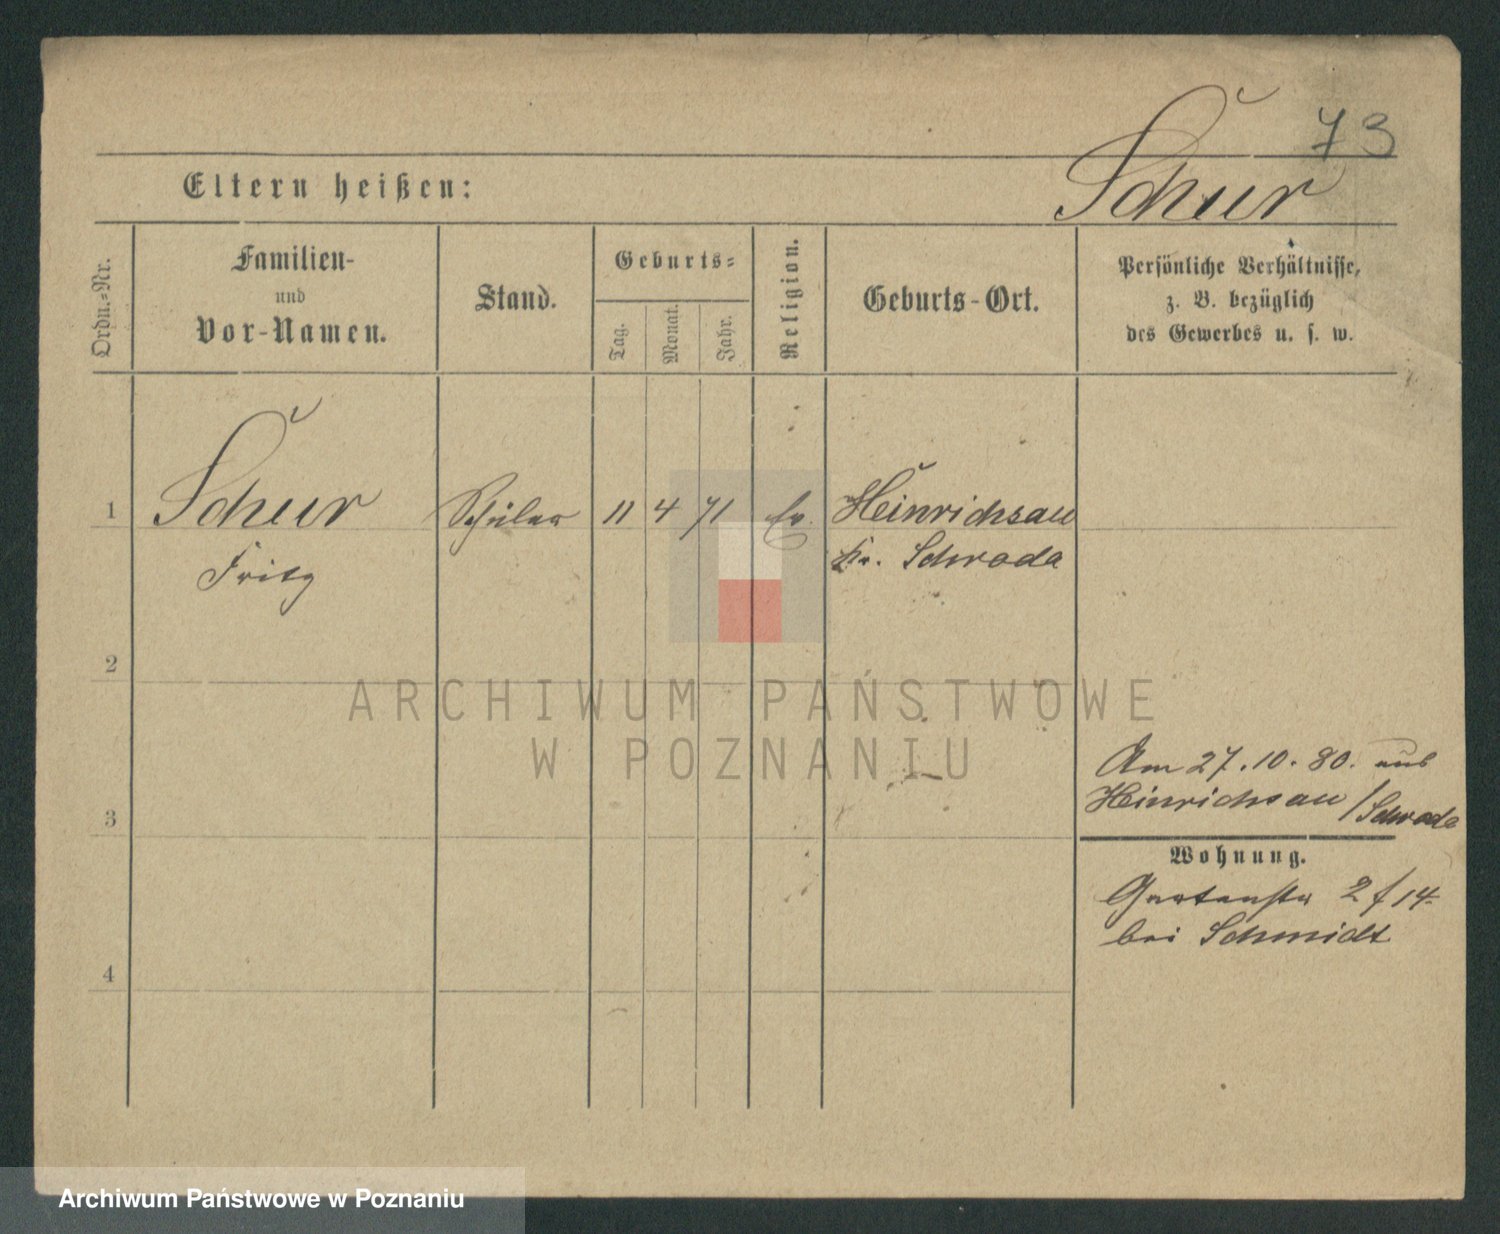 73
Schur
Eltern heißen:
Ordn.-Nr.
Familien-
und
Vor-Namen.
Stand.
Geburts-
Tag.
Monat.
Jahr.
Religion.
Geburts-Ort.
Persönliche Verhältnisse,
z. B. bezüglich
des Gewerbes u. s. w.
1
Schur
Schüler
11
4
71
Ev.
Heinrichsau
Fritz
Kr. Schroda
2
ARCHIWUM PAŃSTWOWE
W POZNANIU
Am 27.10.80. aus
Heinrichsau / Schroda
3
Wohnung.
Gartenstr 2 / 14.
bei Schmidt
4
Archiwum Państwowe w Poznaniu